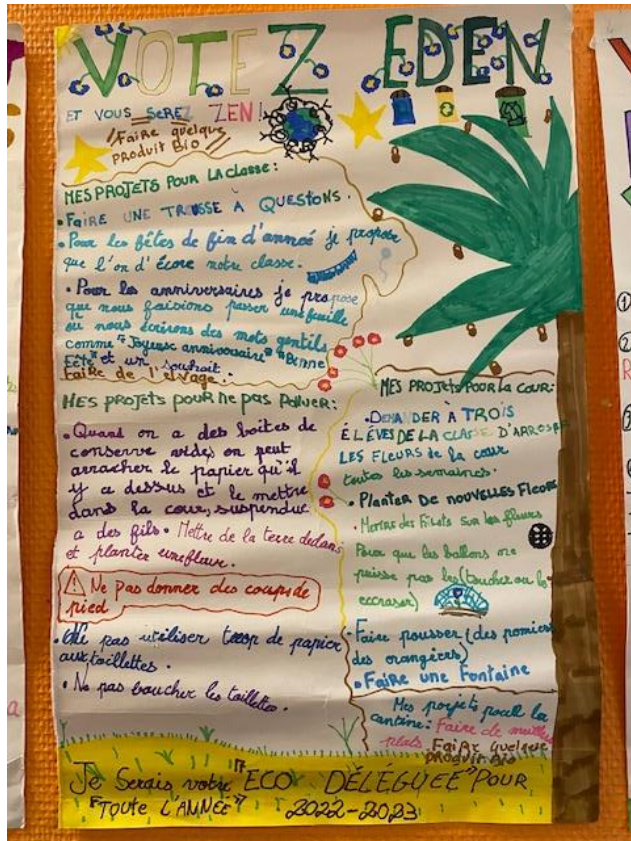 VOTEZ EDEN
ET VOUS SEREZ ZEN!
Faire quelque
PRODUIT BIO
MES PROJETS POUR LA classe:
• FAIRE UNE TROUSSE À QUESTONS.
• Pour les fêtes de fin d'anneé je propose
que l'on d'écore notre classe.
• Pour les anniversaires je propose
que nous faisions passer une feuille
ou nous écrirons des mots gentils
comme "Joyeuse anniversaire" "Bonne
Fête" et un souhait.
faire de l'elvage.
MES PROJETS POUR ne pas Polluer:
• Quand on a des boites de
conserve vides on peut
arracher le papier qu'il
y a dessus et le mettre
dans la cour, suspendue
a des fils. Mettre de la terre dedans
et planter une fleure.
Ne Pas donner des coups de
pied
• Ne pas utiliser trop de papier
aux toillettes.
• Ne pas boucher les toillettes.
MES PROJETS POUR la COUR:
• DEMANDER À TROIS
ÉLÉVES DE LA CLASSE D'ARROSER
LES FLEURS de la cour
toutes les semaines.
• PLANTER DE NOUVELLES FLEURS
• Mettre des filets sur les fleurs
Pour que les ballons ne
puisse pas les (toucher ou les
eccraser)
• Faire pousser (des pomiers
des orangéres)
• FAIRE UNE FONTAINE
Mes projets pour la
cantine: Faire de meilleur
plats FAIRE quelque
PRODUIT BIO
Je Serais votre "ECO DÉLÉGUÉE" POUR
"TOUTE L'ANNÉE" 2022-2023